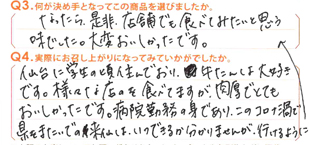 Q3.何が決め手となってこの商品を選びましたか。
なったら、是非、店舗でも食べてみたいと思う
味でした。大変おいしかったです。
Q4.実際にお召し上がりになってみていかがでしたか。
仙台に学生の頃住んでおり、牛たんは大好き
です。様々な店のを食べてますが、肉厚でとても
おいしかったです。病院勤務の身であり、このコロナ渦で
県をまたいでの来仙は、いつできるか分かりませんが、行けるように